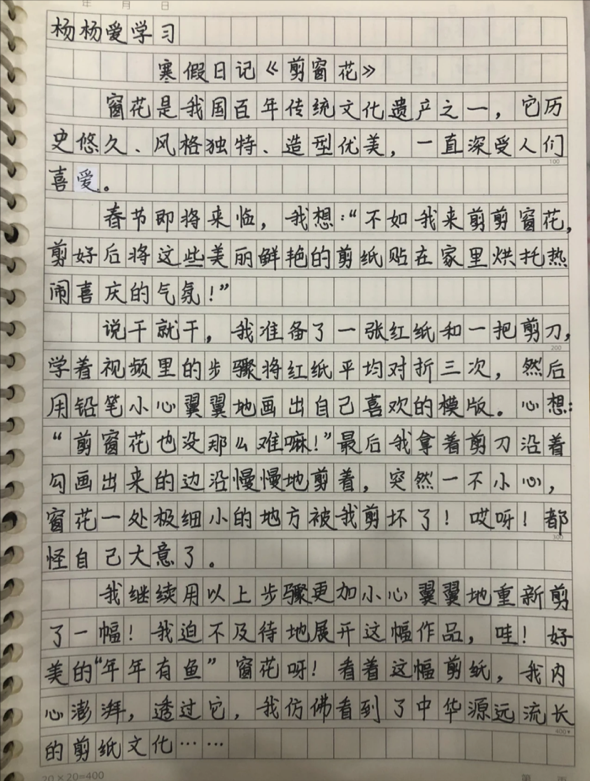 年 月 日
杨杨爱学习
寒假日记《剪窗花》
窗花是我国百年传统文化遗产之一，它历
史悠久、风格独特、造型优美，一直深受人们
100
喜爱。
春节即将来临，我想：“不如我来剪剪窗花，
剪好后将这些美丽鲜艳的剪纸贴在家里烘托热
闹喜庆的气氛！”
说干就干，我准备了一张红纸和一把剪刀，
200
学着视频里的步骤将红纸平均对折三次，然后
用铅笔小心翼翼地画出自己喜欢的模版。心想：
“剪窗花也没那么难嘛！”最后我拿着剪刀沿着
勾画出来的边沿慢慢地剪着，突然一不小心，
窗花一处极细小的地方被我剪坏了！哎呀！都
300
怪自己大意了。
我继续用以上步骤更加小心翼翼地重新剪
了一幅！我迫不及待地展开这幅作品，哇！好
美的“年年有鱼”窗花呀！看着这幅剪纸，我内
心澎湃，透过它，我仿佛看到了中华源远流长
400
的剪纸文化……
20×20=400